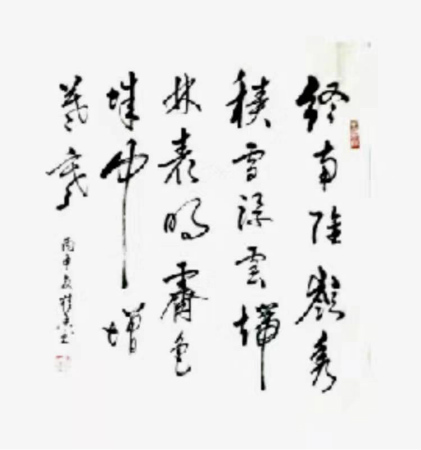 終南陰嶺秀
積雪浮雲端
林表明霽色
城中增
暮寒
丙申